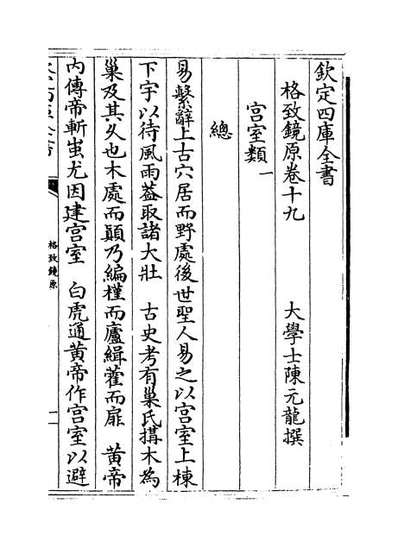 欽定四庫全書
格致鏡原卷十九
大學士陳元龍撰
宮室類一
總
易繫辭上古穴居而野處後世聖人易之以宮室上棟
下宇以待風雨葢取諸大壯 古史考有巢氏搆木為
巢及其久也木處而顛乃編槿而廬緝藋而扉 黃帝
內傳帝斬蚩尤因建宮室 白虎通黃帝作宮室以避
格致鏡原